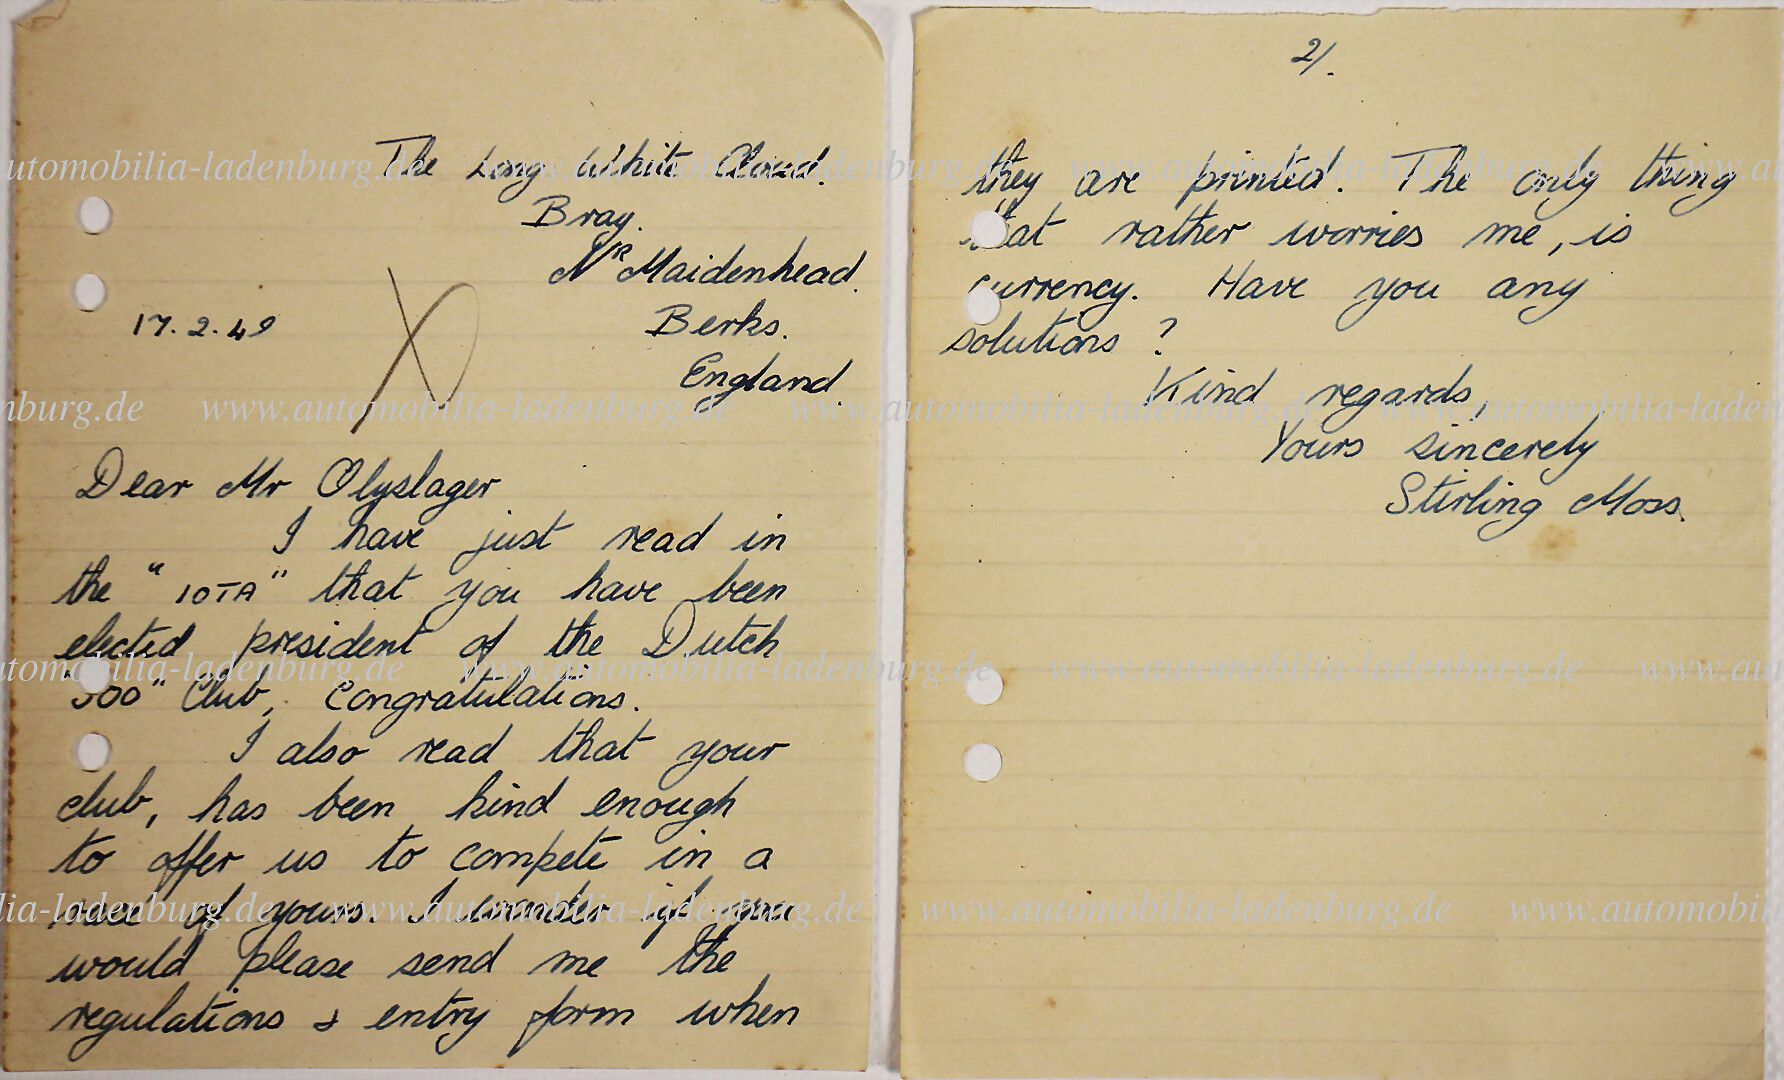 The Long White Cloud.
Bray.
Nr Maidenhead.
17.2.49
Berks.
England.
Dear Mr Olyslager
I have just read in
the "IOTA" that you have been
elected president of the Dutch
"500" Club, Congratulations.
I also read that your
club, has been kind enough
to offer us to compete in a
race of yours. I wonder if you
would please send me the
regulations & entry form when
2/.
they are printed. The only thing
that rather worries me, is
currency. Have you any
solutions?
Kind regards,
Yours sincerely
Stirling Moss.
www.automobilia-ladenburg.de